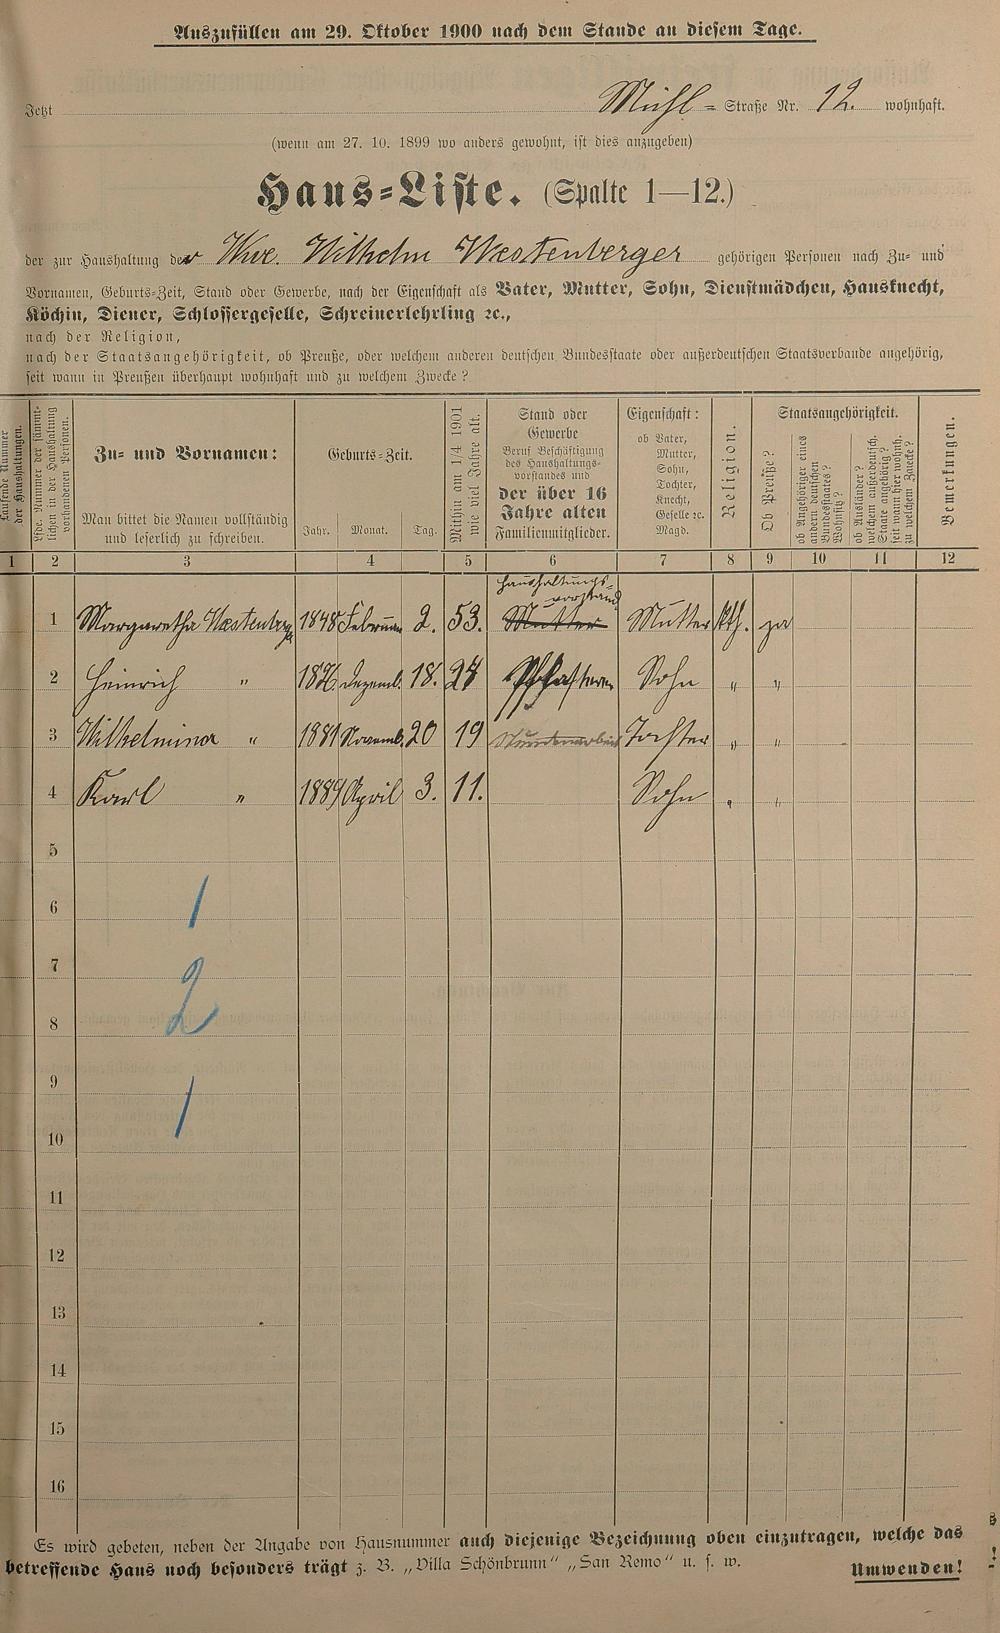 Auszufüllen am 29. Oktober 1900 nach dem Stande an diesem Tage.
Jetzt Mühl= Straße Nr. 12. wohnhaft.
(wenn am 27. 10. 1899 wo anders gewohnt, ist dies anzugeben)
Haus=Liste. (Spalte 1—12.)
der zur Haushaltung der Wwe. Wilhelm Westenberger gehörigen Personen nach Zu- und
Vornamen, Geburts-Zeit, Stand oder Gewerbe, nach der Eigenschaft als Vater, Mutter, Sohn, Dienstmädchen, Hausknecht,
Köchin, Diener, Schlossergeselle, Schreinerlehrling ꝛc.,
nach der Religion,
nach der Staatsangehörigkeit, ob Preuße, oder welchem anderen deutschen Bundesstaate oder außerdeutschen Staatsverbande angehörig,
seit wann in Preußen überhaupt wohnhaft und zu welchem Zwecke?
Laufende Nummer der Haushaltungen.
Lfde. Nummer der sämmtlichen in der Haushaltung vorhandenen Personen.
Zu- und Vornamen:
Man bittet die Namen vollständig
und leserlich zu schreiben.
Geburts-Zeit.
Jahr. Monat. Tag.
Mithin am 1/4 1901 wie viel Jahre alt.
Stand oder
Gewerbe
Beruf Beschäftigung
des Haushaltungs-
vorstandes und
der über 16
Jahre alten
Familienmitglieder.
Eigenschaft:
ob Vater,
Mutter,
Sohn,
Tochter,
Knecht,
Geselle ꝛc.
Magd.
Religion.
Staatsangehörigkeit.
Ob Preuße?
ob Angehöriger eines andern deutschen Bundesstaates? Wohnsitz?
ob Ausländer? welchem außerdeutsch. Staate angehörig? seit wann hier wohnh. zu welchem Zwecke?
Bemerkungen.
1 2 3 4 5 6 7 8 9 10 11 12
Haushaltungs-
vorstand
1 Margaretha Westenberger 1848 Februar 2. 53. Mutter Mutter Kth. ja
2 Heinrich " 1876 Dezemb. 18. 24 Sohn " "
3 Wilhelmina " 1881 Novemb. 20 19 Tochter " "
4 Karl " 1889 April 3. 11. Sohn " "
5
6
1
7
2
8
9
1
10
11
12
13
14
15
16
Es wird gebeten, neben der Angabe von Hausnummer auch diejenige Bezeichnung oben einzutragen, welche das
betreffende Haus noch besonders trägt z. B. „Villa Schönbrunn“ „San Remo“ u. s. w. Umwenden!